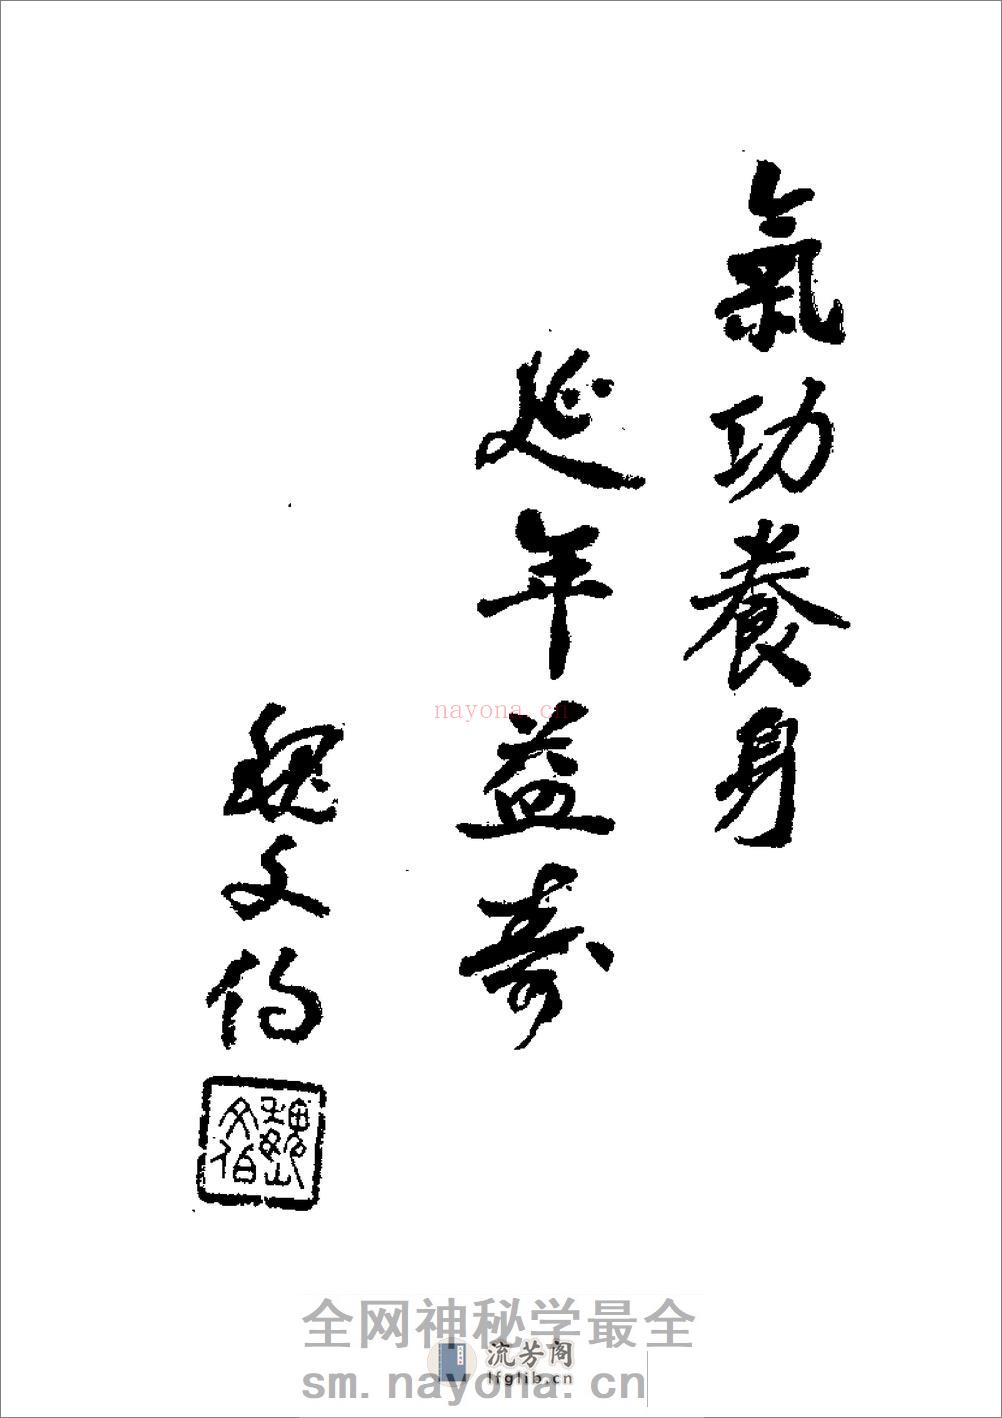 氣功養身
延年益壽
魏文伯
魏文伯
nayona.cn
全网神秘学最全
流芳阁
lfglib.cn
sm.nayona.cn